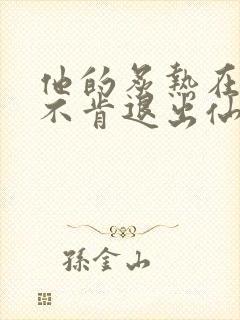 他的炙熱在
不肯退出仙
孫金山